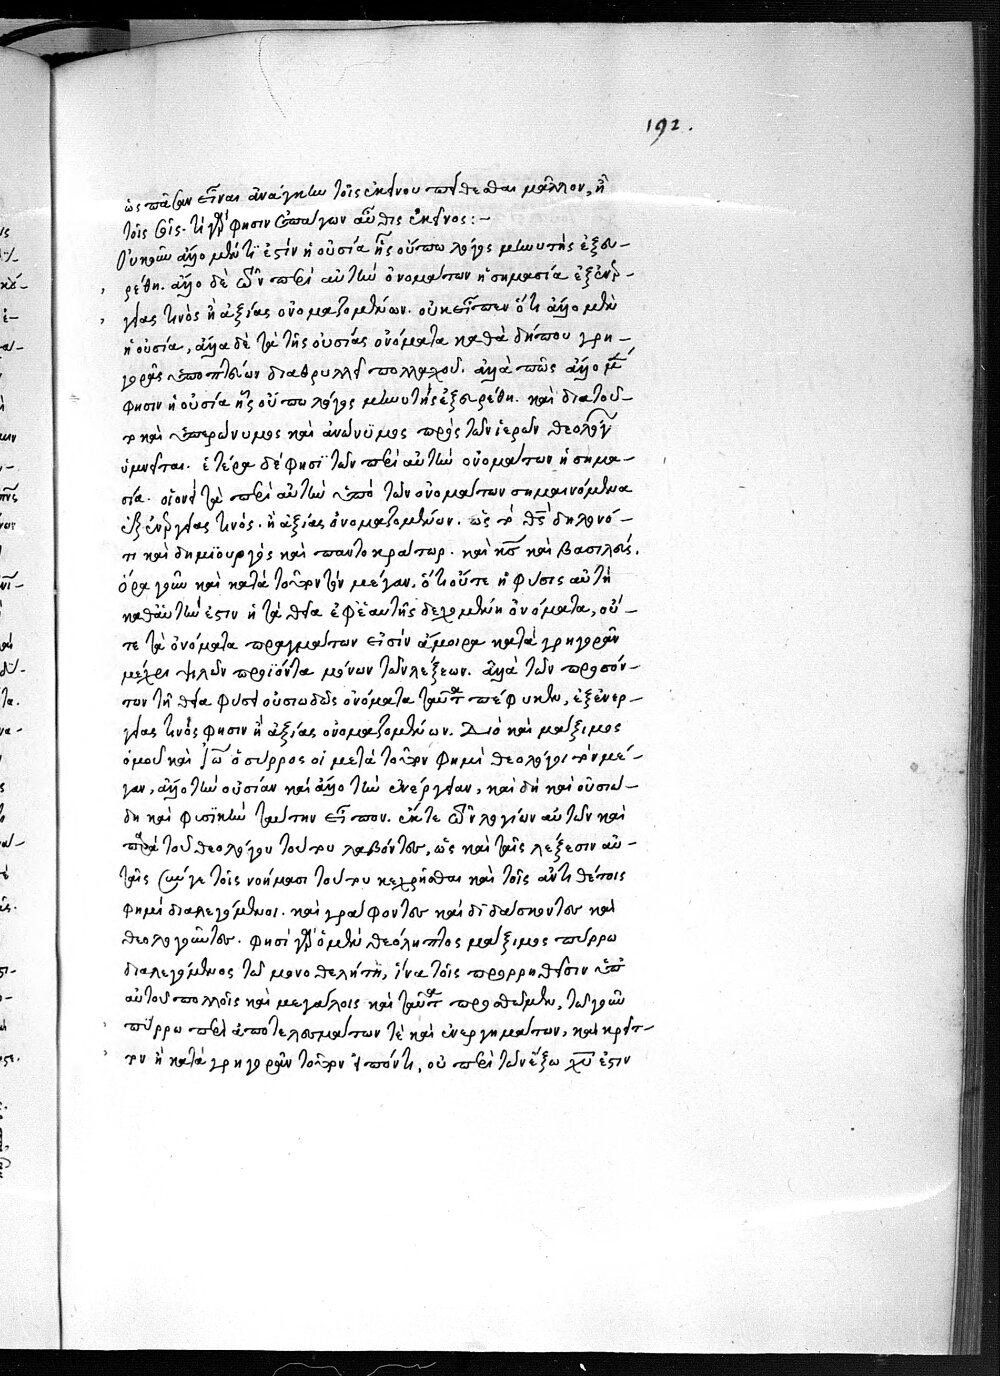 192.
ὡς πᾶσαν εἶναι ἀνάγκην τοῖς ἐκείνου πείθεσθαι μᾶλλον, ἢ
τοῖς σοῖς. τί γάρ φησιν ἐπάγων αὖθις ἐκεῖνος:-
Οὐκοῦν ἄλλο μέν τι ἐστὶν ἡ οὐσία ἧς οὔπω λόγος μηνυτὴς ἐξευ-
ρέθη. ἄλλο δὲ τῶν περὶ αὐτὴν ὀνομάτων ἡ σημασία ἐξ ἐνερ-
γείας τινὸς ἢ ἀξίας ὀνομαζομένων. οὐκ εἶπεν ὅτι ἄλλο μὲν
ἡ οὐσία, ἄλλα δὲ τὰ τῆς οὐσίας ὀνόματα καθὰ δήπου γρη-
γορᾶς διαθρυλλεῖ πολλαχοῦ. ἀλλὰ πῶς ἄλλο μέν
φησιν ἡ οὐσία ἧς οὔπω λόγος μηνυτὴς ἐξευρέθη. καὶ διὰ τοῦ-
το καὶ ὑπερώνυμος καὶ ἀνώνυμος πρὸς τῶν ἱερῶν θεολόγων
ὑμνεῖται. ἑτέρα δέ φησι τῶν περὶ αὐτὴν ὀνομάτων ἡ σημα-
σία. οἱονεὶ τὰ περὶ αὐτὴν ὑπὸ τῶν ὀνομάτων σημαινόμενα
ἐξ ἐνεργείας τινὸς. ἢ ἀξίας ὀνομαζομένων. ὡς τὸ θεὸς δηλονό-
τι καὶ δημιουργὸς καὶ παντοκράτωρ. καὶ κς καὶ βασιλεύς.
ὅρα γοῦν καὶ κατὰ τοῦτον τὸν μέγαν. ὅτι οὔτε ἡ φύσις αὐτὴ
καθ' αὑτήν ἐστιν ἡ τὰ θεῖα ἐφ' ἑαυτῆς δεχομένη ὀνόματα, οὔ-
τε τὰ ὀνόματα πραγμάτων εἰσὶν ἄμοιρα κατὰ γρηγορᾶν
μέχρι ψιλῶν προϊόντα μόνων τῶν λέξεων. ἀλλὰ τῶν προσόν-
των τῇ θείᾳ φύσει οὐσιωδῶς ὀνόματα ταῦτα πέφυκεν, ἐξ ἐνερ-
γείας τινός φησιν ἢ ἀξίας ὀνομαζομένων. Διὸ καὶ μάξιμος
ὁμοῦ καὶ ἰω ὁ σύρρος οἱ μετὰ τοῦτον φημὶ θεολόγοι τὸν μέ-
γαν, ἄλλο τὴν οὐσίαν καὶ ἄλλο τὴν ἐνέργειαν, καὶ δὴ καὶ οὐσιώ-
δη καὶ φυσικὴν ταύτην εἶπον. ἔκ τε τῶν λογίων αὐτῶν καὶ
παρὰ τοῦ θεολόγου τοῦτο λαβόντες, ὡς καὶ ταῖς λέξεσιν αὐ-
ταῖς σύν γε τοῖς νοήμασι τούτου κεχρῆσθαι καὶ τοῖς ἀντιθέτοις
φημὶ διαλεγόμενοι. καὶ γράφοντες καὶ διδάσκοντες καὶ
θεολογοῦντες. φησὶ γὰρ ὁ μὲν θεόληπτος μάξιμος πύρρῳ
διαλεγόμενος τῷ μονοθελήτῃ, ἵνα τοῖς προρρηθεῖσιν ὑπ'
αὐτοῦ πολλοῖς καὶ μεγάλοις καὶ ταῦτα προσθῶμεν, τῷ γοῦν
πύρρῳ περὶ ἀποτελεσμάτων τὲ καὶ ἐνεργημάτων, καὶ κρεῖτ-
τον ἢ κατὰ γρηγορᾶν τοῦτον εἰπόντι, οὐ περὶ τῶν ἔξω χυ ἐστιν